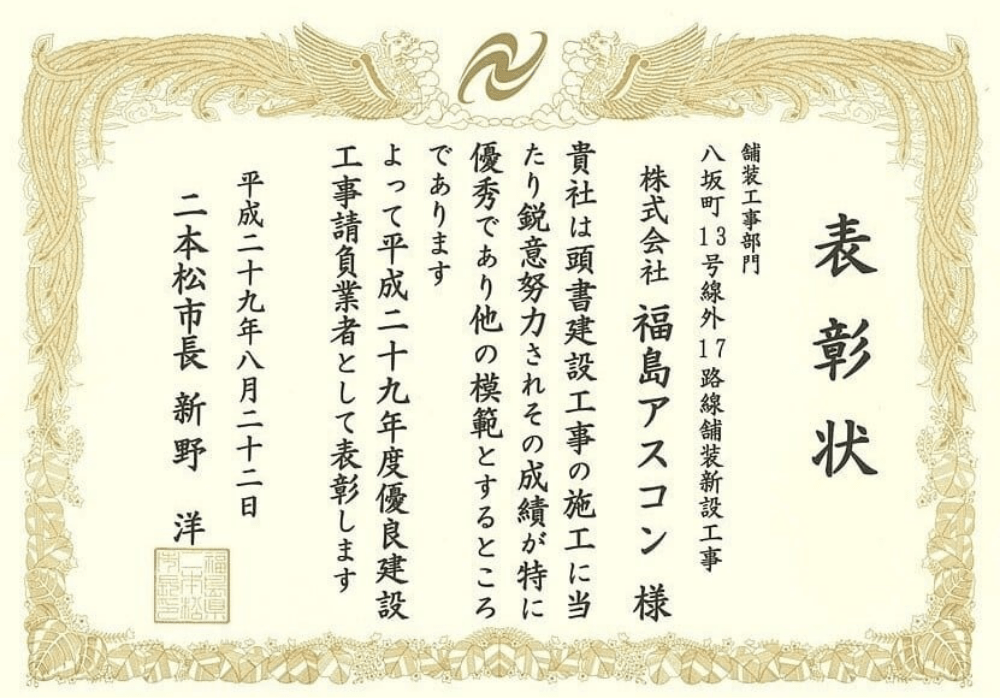 表彰状
舗装工事部門
八坂町13号線外17路線舗装新設工事
株式会社 福島アスコン 様
貴社は頭書建設工事の施工に当
たり鋭意努力されその成績が特に
優秀であり他の模範とするところ
であります
よって平成二十九年度優良建設
工事請負業者として表彰します
平成二十九年八月二十二日
二本松市長 新野 洋